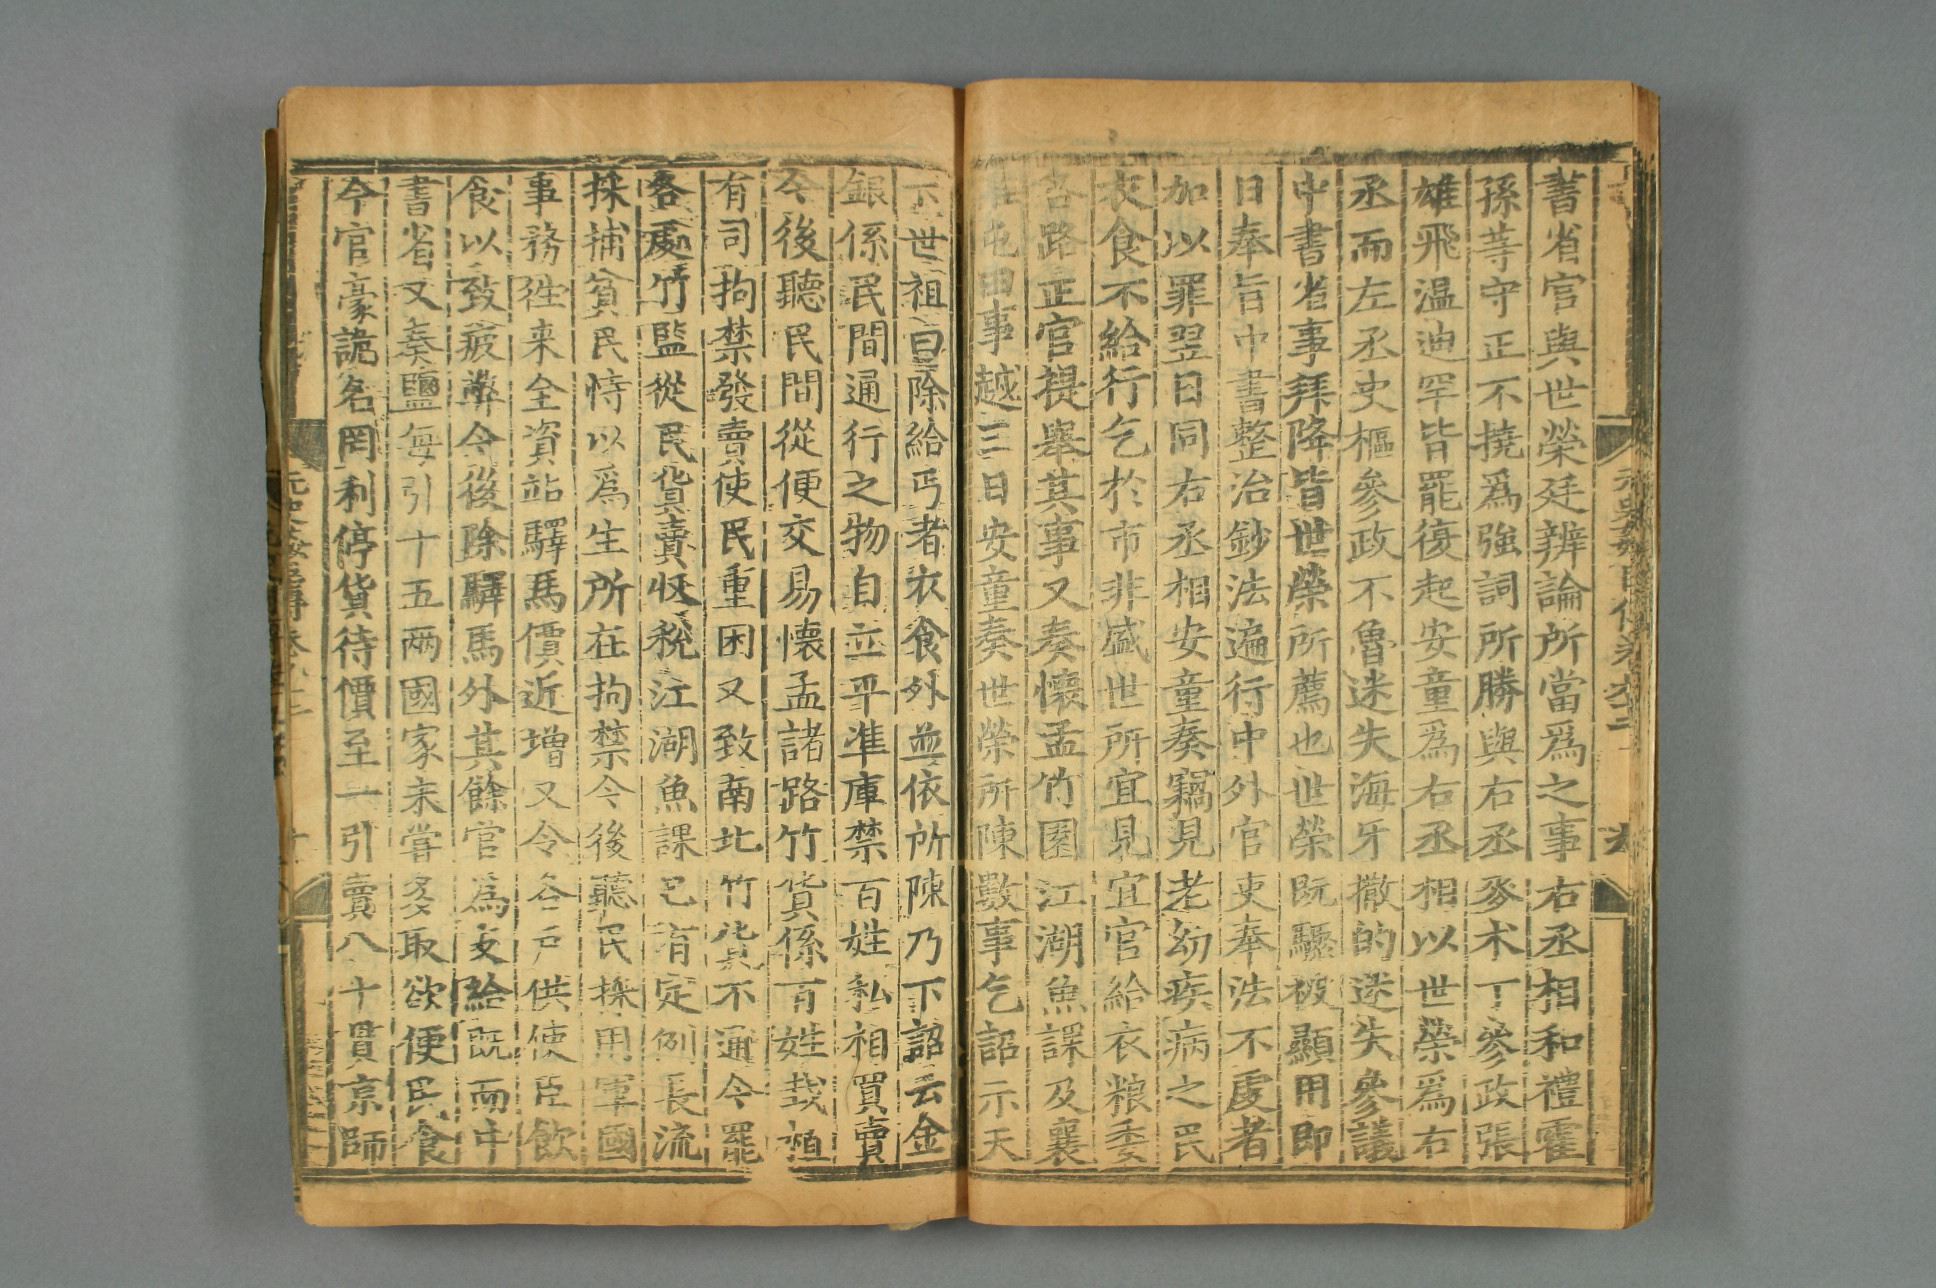 書省官與世榮廷辨論所當爲之事右丞相和禮霍
孫等守正不撓爲強詞所勝與右丞麥术丁參政張
雄飛溫迪罕皆罷復起安童爲右丞相以世榮爲右
丞而左丞史樞參政不魯迷失海牙撒的迷失參議
中書省事拜降皆世榮所薦也世榮旣驟被顯用即
日奉旨中書整治鈔法遍行中外官吏奉法不虔者
加以罪翌日同右丞相安童奏竊見老幼疾病之民
衣食不給行乞於市非盛世所宜見宜官給衣粮委
各路正官提舉其事又奏懷孟竹園江湖魚課及襄
淮屯田事越三日安童奏世榮所陳數事乞詔示天
下世祖曰除給丐者衣食外並依所陳乃下詔云金
銀係民間通行之物自立平準庫禁百姓私相買賣
今後聽民間從便交易懷孟諸路竹貨係百姓栽植
有司拘禁發賣使民重困又致南北竹貨不通今罷
各處竹監從民貨賣收稅江湖魚課已有定例長流
採捕貧民恃以爲生所在拘禁今後聽民採用軍國
事務徃来全資站驛馬價近增又令各戶供使臣飲
食以致疲弊今後除驛馬外其餘官爲支給旣而中
書省又奏鹽每引十五兩國家未嘗多取欲便民食
今官豪詭名罔利停貨待價至一引賣八十貫京師